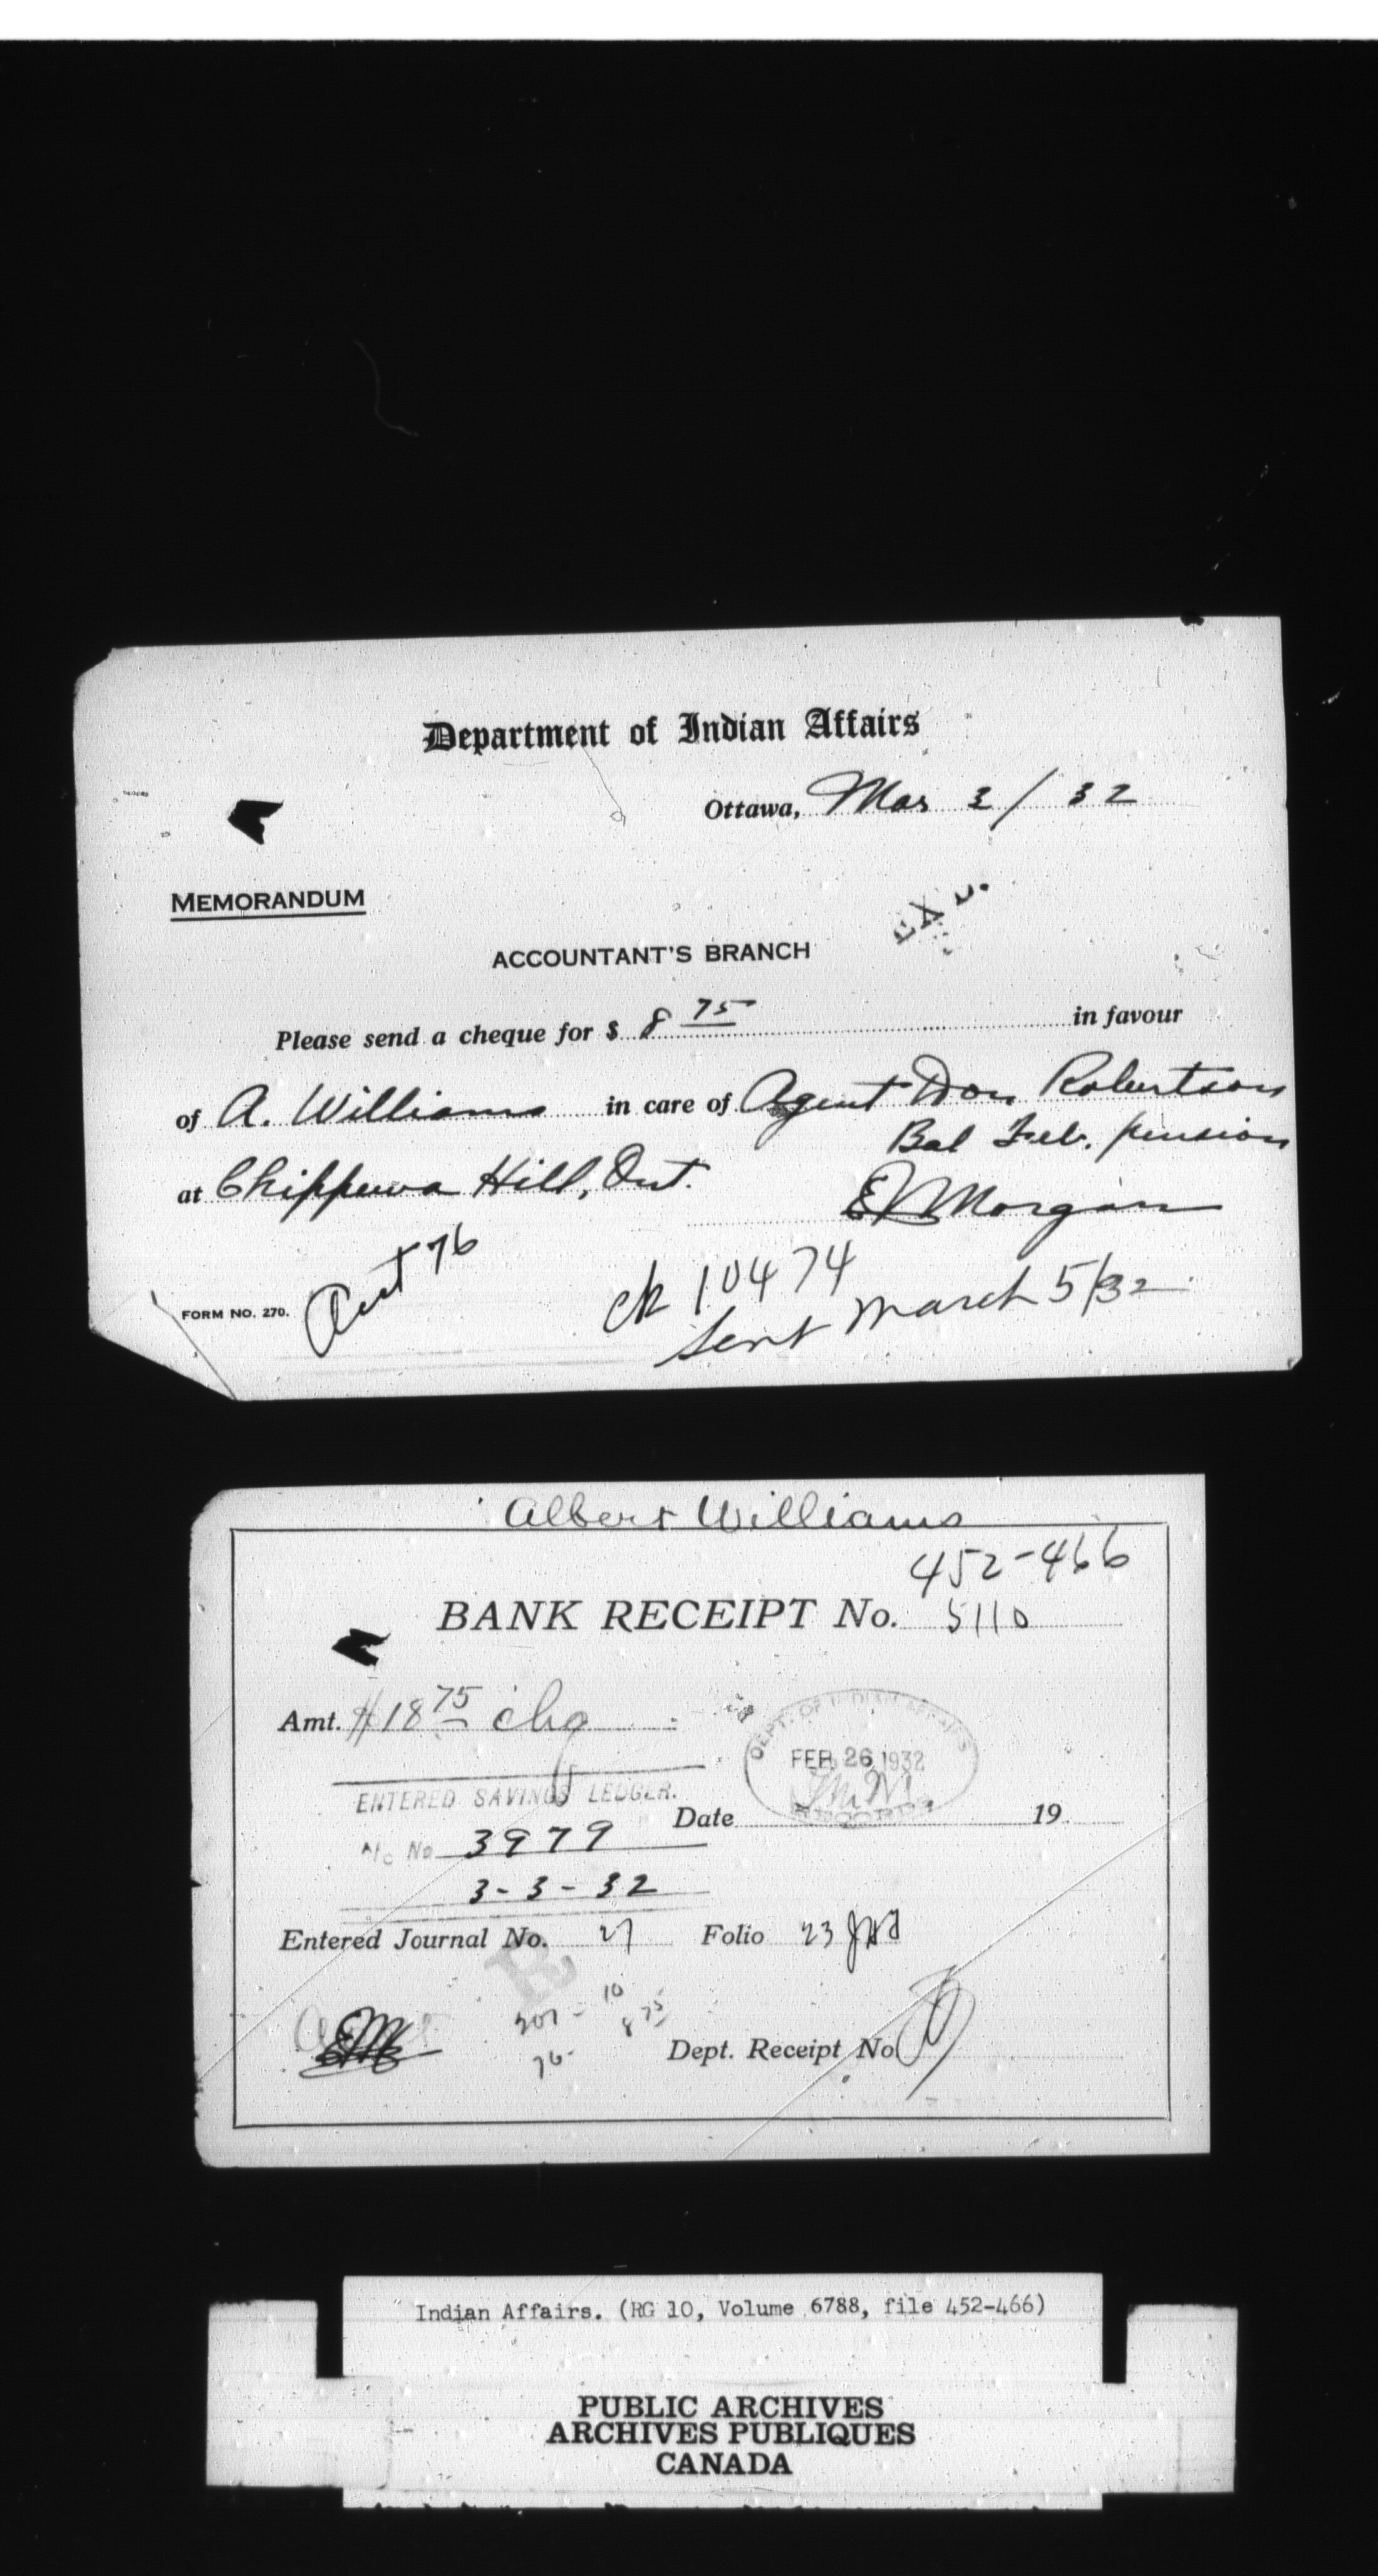 Department of Indian Affairs
Ottawa, Mar 3/32
MEMORANDUM
ACCOUNTANT'S BRANCH
Please send a cheque for $ 8 75 in favour
of A. Williams in care of Agent Don Robertson
Bal Feb. pension
at Chippewa Hill, Ont.
E Morgan
76
FORM NO. 270.
ck 10474
Sent March 5/32
Albert Williams
452-466
BANK RECEIPT No. 5110
Amt. $18 75 chq
DEPT. OF INDIAN AFFAIRS
FEB 26 1932
RECORDS
ENTERED SAVINGS LEDGER.
Date 19
A/c No 3979
3-3-32
Entered Journal No. 27 Folio 23
R
201 - 10
76- 8 75
Dept. Receipt No
Indian Affairs. (RG 10, Volume 6788, file 452-466)
PUBLIC ARCHIVES
ARCHIVES PUBLIQUES
CANADA